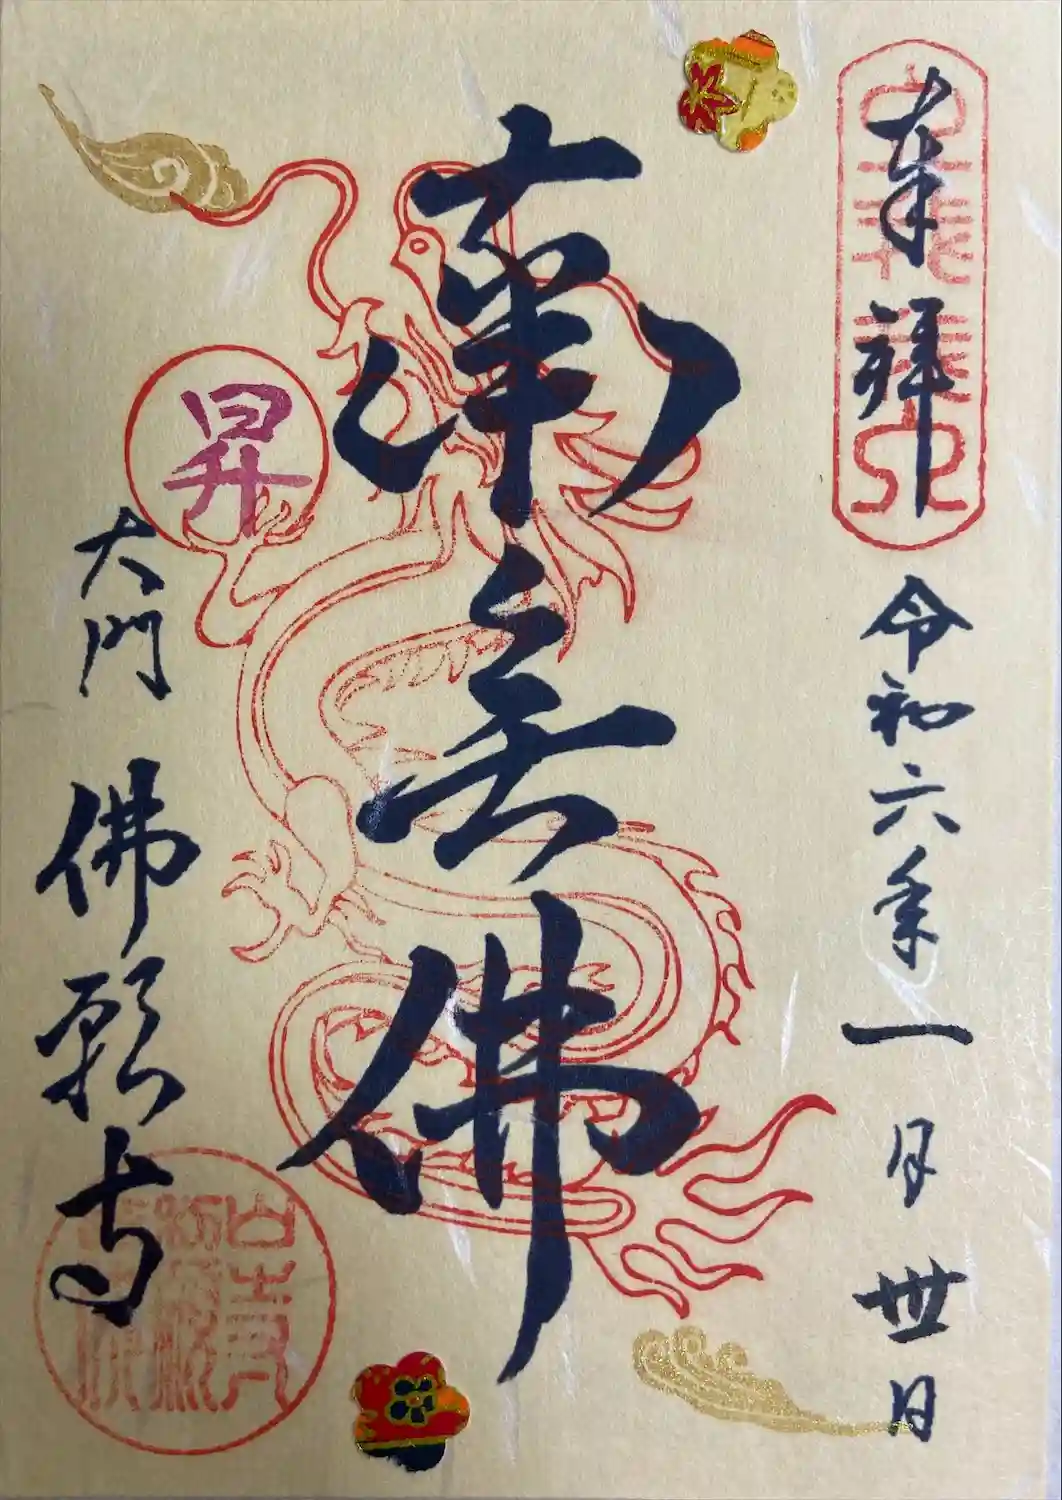 奉拝
令和六年一月卅日
南無佛
昇
大門
佛願寺